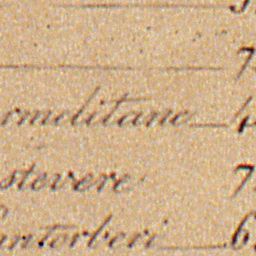 7
rmelitane 4
stevere 7
ntorberi 6